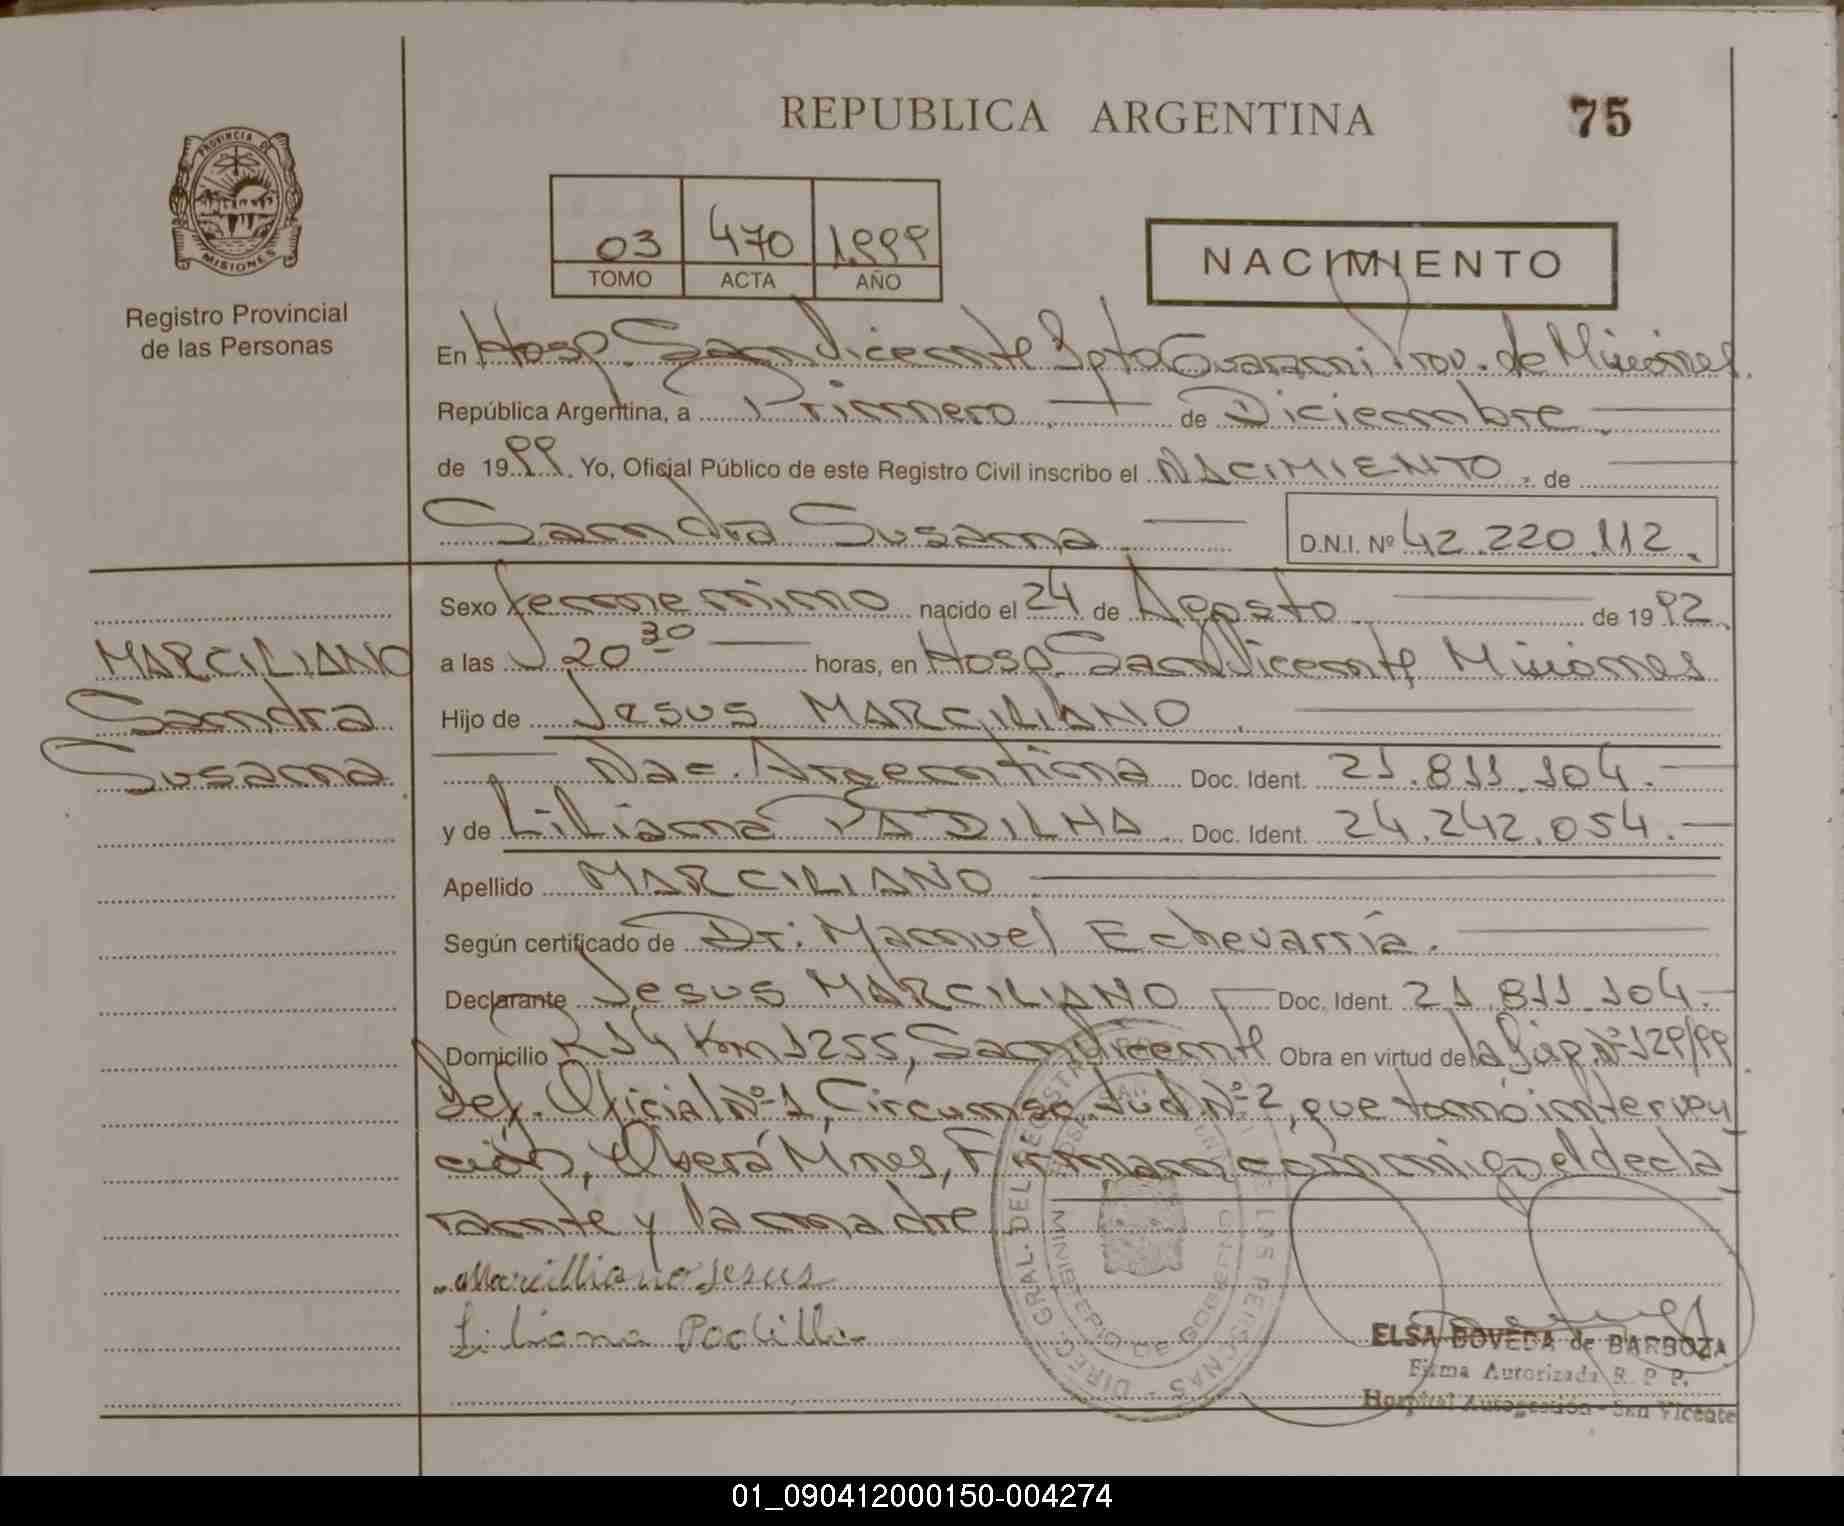 REPUBLICA ARGENTINA
75
PROVINCIA DE
MISIONES
Registro Provincial
de las Personas
03 470 1.999
TOMO ACTA AÑO
NACIMIENTO
En Hosp. San Vicente Dpto Guaraní Prov. de Misiones.
República Argentina, a Primero de Diciembre
de 1999. Yo, Oficial Público de este Registro Civil inscribo el NACIMIENTO de
Sandra Susana D.N.I. Nº 42.220.112.
Sexo femenino nacido el 24 de Agosto de 1992.
MARCILIANO
Sandra
Susana
a las 20 30 horas, en Hosp. San Vicente Misiones
Hijo de Jesus MARCILIANO
Nac. Argentina Doc. Ident. 21.811.104.
y de Liliana PADILHA Doc. Ident. 24.242.054.
Apellido MARCILIANO
Según certificado de Dr. Manuel Echevarría.
Declarante Jesus MARCILIANO Doc. Ident. 21.811.104.
Domicilio R 14 Km 1255, San Vicente Obra en virtud de la Nº 129/99
Def. Oficial Nº 1, Circunsc. Jud. Nº 2, que tomó interven
ción, Oberá Mnes, Firman conmigo el decla
rante y la madre
Marcilliano Jesus
Liliana Padilla
ELSA BOVEDA de BARBOZA
Firma Autorizada R. P. P.
Hospital Autogestión - San Vicente
01_090412000150-004274